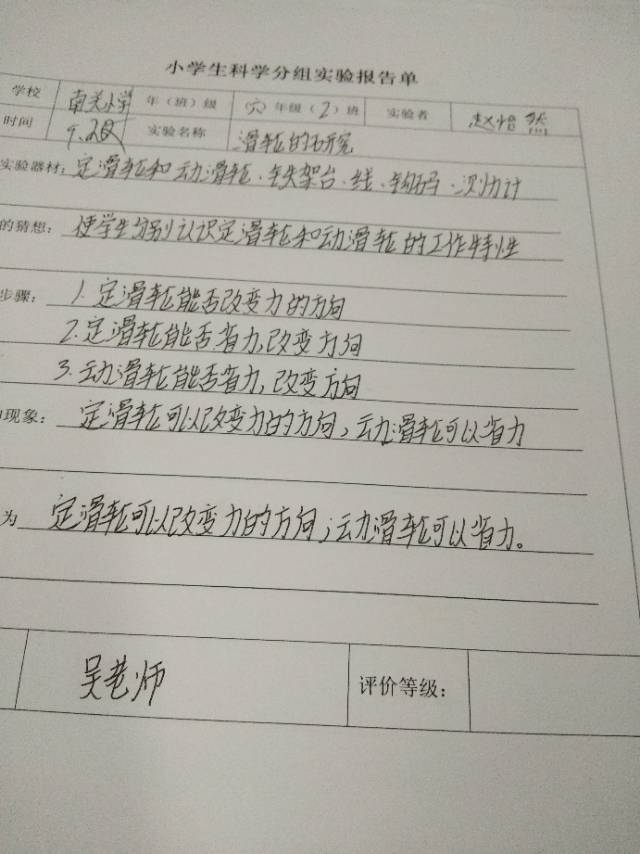 小学生科学分组实验报告单
学校 南关小学 年（班）级 六 年级（2）班 实验者 赵怡然
时间 9.28 实验名称 滑轮的研究
实验器材：定滑轮和动滑轮、铁架台、线、钩码、测力计
的猜想：使学生分别认识定滑轮和动滑轮的工作特性
步骤：1.定滑轮能否改变力的方向
2.定滑轮能否省力,改变方向
3.动滑轮能否省力,改变方向
现象：定滑轮可以改变力的方向,动滑轮可以省力
为 定滑轮可以改变力的方向,动滑轮可以省力。
吴老师 评价等级：